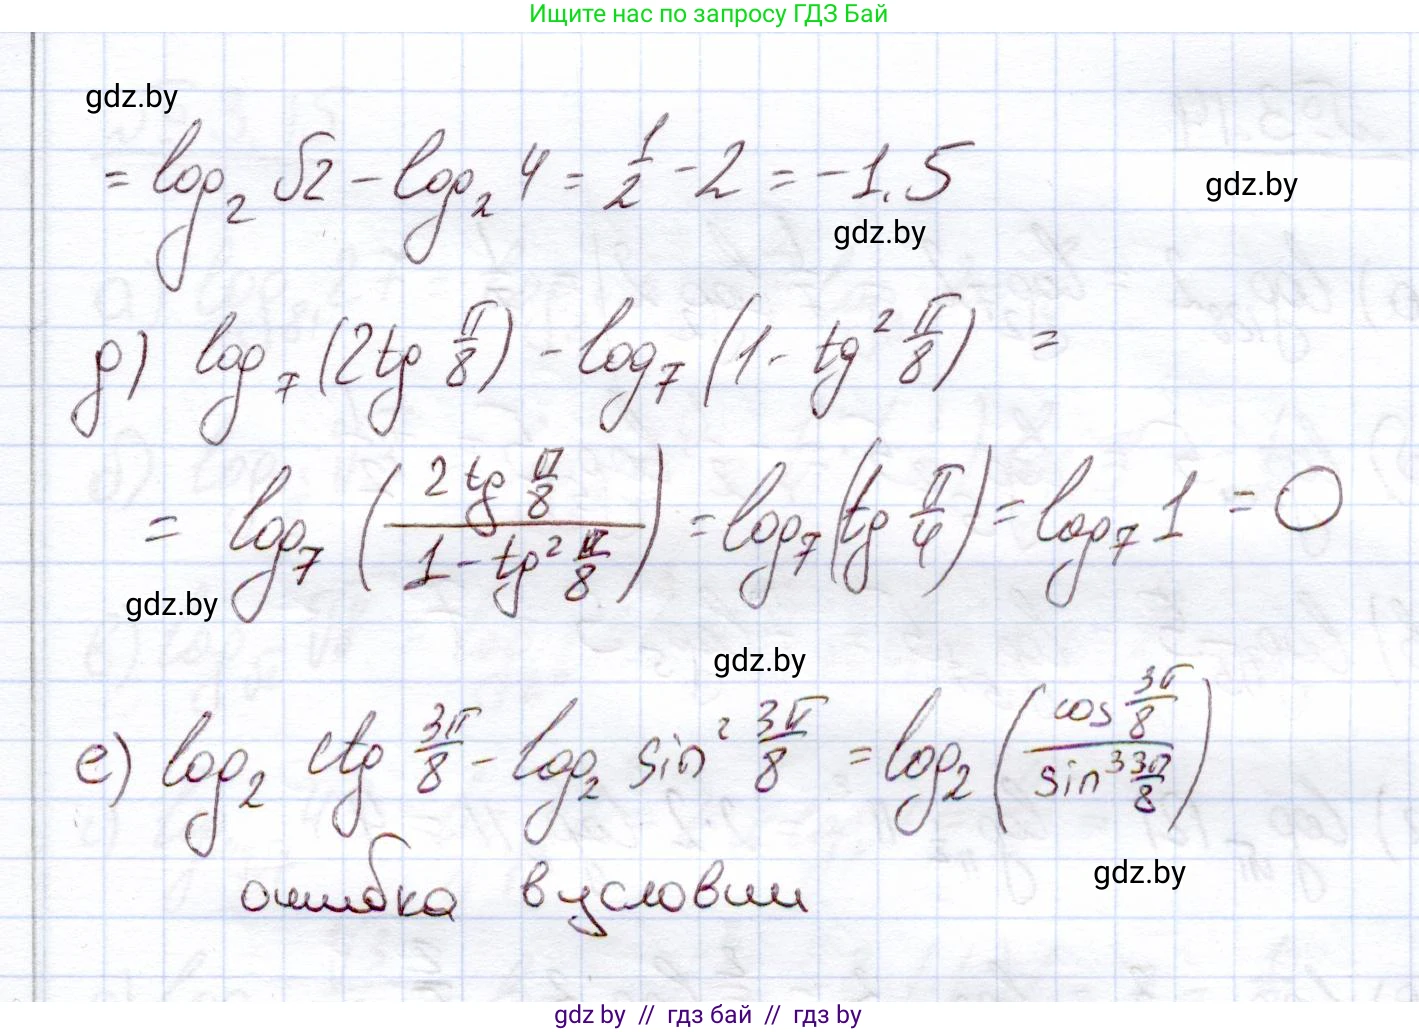 Ищите нас по запросу ГДЗ Бай
gdz.by
= log₂ √2 - log₂ 4 = 1/2 - 2 = -1.5
gdz.by
gdz.by
д) log₇ (2tg π/8) - log₇ (1 - tg² π/8) =
= log₇ (2 tg π/8 / 1 - tg² π/8) = log₇ (tg π/4) = log₇ 1 = 0
gdz.by
gdz.by
е) log₂ ctg 3π/8 - log₂ sin² 3π/8 = log₂ (cos 3π/8 / sin³ 3π/8)
gdz.by
ошибка в условии
gdz by // гдз бай // гдз by